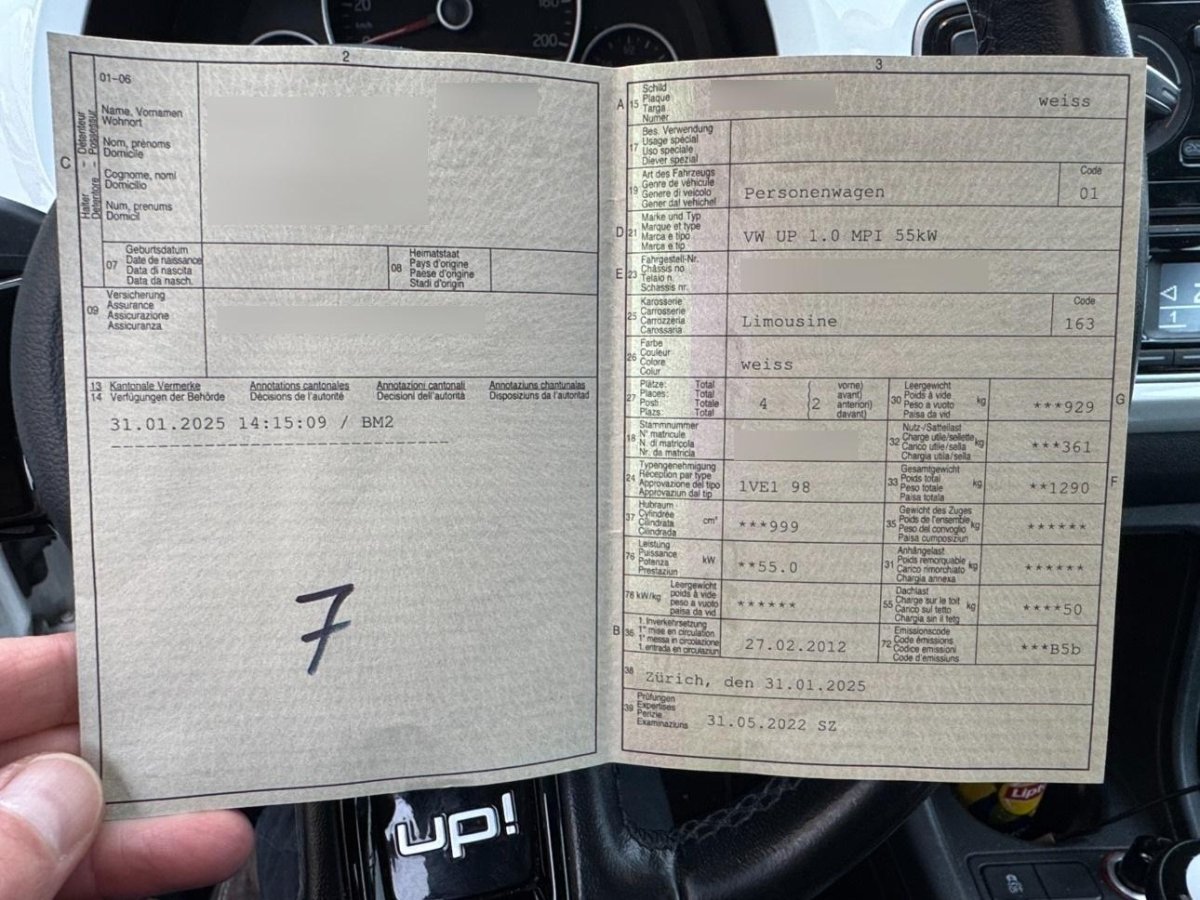 20
160
200
2
01-06
Halter - Détenteur
Detentore - Possessur
C
Name, Vornamen
Wohnort
Nom, prénoms
Domicile
Cognome, nomi
Domicilio
Num, prenums
Domicil
07
Geburtsdatum
Date de naissance
Data di nascita
Data da nasch.
08
Heimatstaat
Pays d'origine
Paese d'origine
Stadi d'origin
09
Versicherung
Assurance
Assicurazione
Assicuranza
13 Kantonale Vermerke Annotations cantonales Annotazioni cantonali Annotaziuns chantunalas
14 Verfügungen der Behörde Décisions de l'autorité Decisioni dell'autorità Disposiziuns da l'autoritad
31.01.2025 14:15:09 / BM2
7
3
A 15
Schild
Plaque
Targa
Numer
weiss
17
Bes. Verwendung
Usage spécial
Uso speciale
Diever spezial
19
Art des Fahrzeugs
Genre de véhicule
Genere di veicolo
Gener dal vehichel
Personenwagen
Code
01
D 21
Marke und Typ
Marque et type
Marca e tipo
Marca e tip
VW UP 1.0 MPI 55kW
E 23
Fahrgestell-Nr.
Châssis no
Telaio n.
Schassis nr.
25
Karosserie
Carrosserie
Carrozzeria
Carossaria
Limousine
Code
163
26
Farbe
Couleur
Colore
Colur
weiss
27
Plätze: Total
Places: Total
Posti: Totale
Plazs: Total
4
(2
vorne)
avant)
anteriori)
davant)
30
Leergewicht
Poids à vide
Peso a vuoto
Paisa da vid
kg
***929
G
18
Stammnummer
N° matricule
N. di matricola
Nr. da matricla
32
Nutz-/Sattellast
Charge utile/sellette
Carico utile/sella
Chargia utila/sella
kg
***361
24
Typengenehmigung
Réception par type
Approvazione del tipo
Approvaziun dal tip
1VE1 98
33
Gesamtgewicht
Poids total
Peso totale
Paisa totala
kg
**1290
F
37
Hubraum
Cylindrée
Cilindrata
Cilindrada
cm³
***999
35
Gewicht des Zuges
Poids de l'ensemble
Peso del convoglio
Paisa cumposiziun
kg
******
76
Leistung
Puissance
Potenza
Prestaziun
kW
**55.0
31
Anhängelast
Poids remorquable
Carico rimorchiato
Chargia annexa
kg
******
78 kW/kg
Leergewicht
poids à vide
peso a vuoto
paisa da vid
******
55
Dachlast
Charge sur le toit
Carico sul tetto
Chargia sin il tetg
kg
****50
B 36
1. Inverkehrsetzung
1re mise en circulation
1a messa in circolazione
1. entrada en circulaziun
27.02.2012
72
Emissionscode
Code émissions
Codice emissioni
Code d'emissiuns
***B5b
38
Zürich, den 31.01.2025
39
Prüfungen
Expertises
Perizie
Examinaziuns
31.05.2022 SZ
up!
Lipt
1